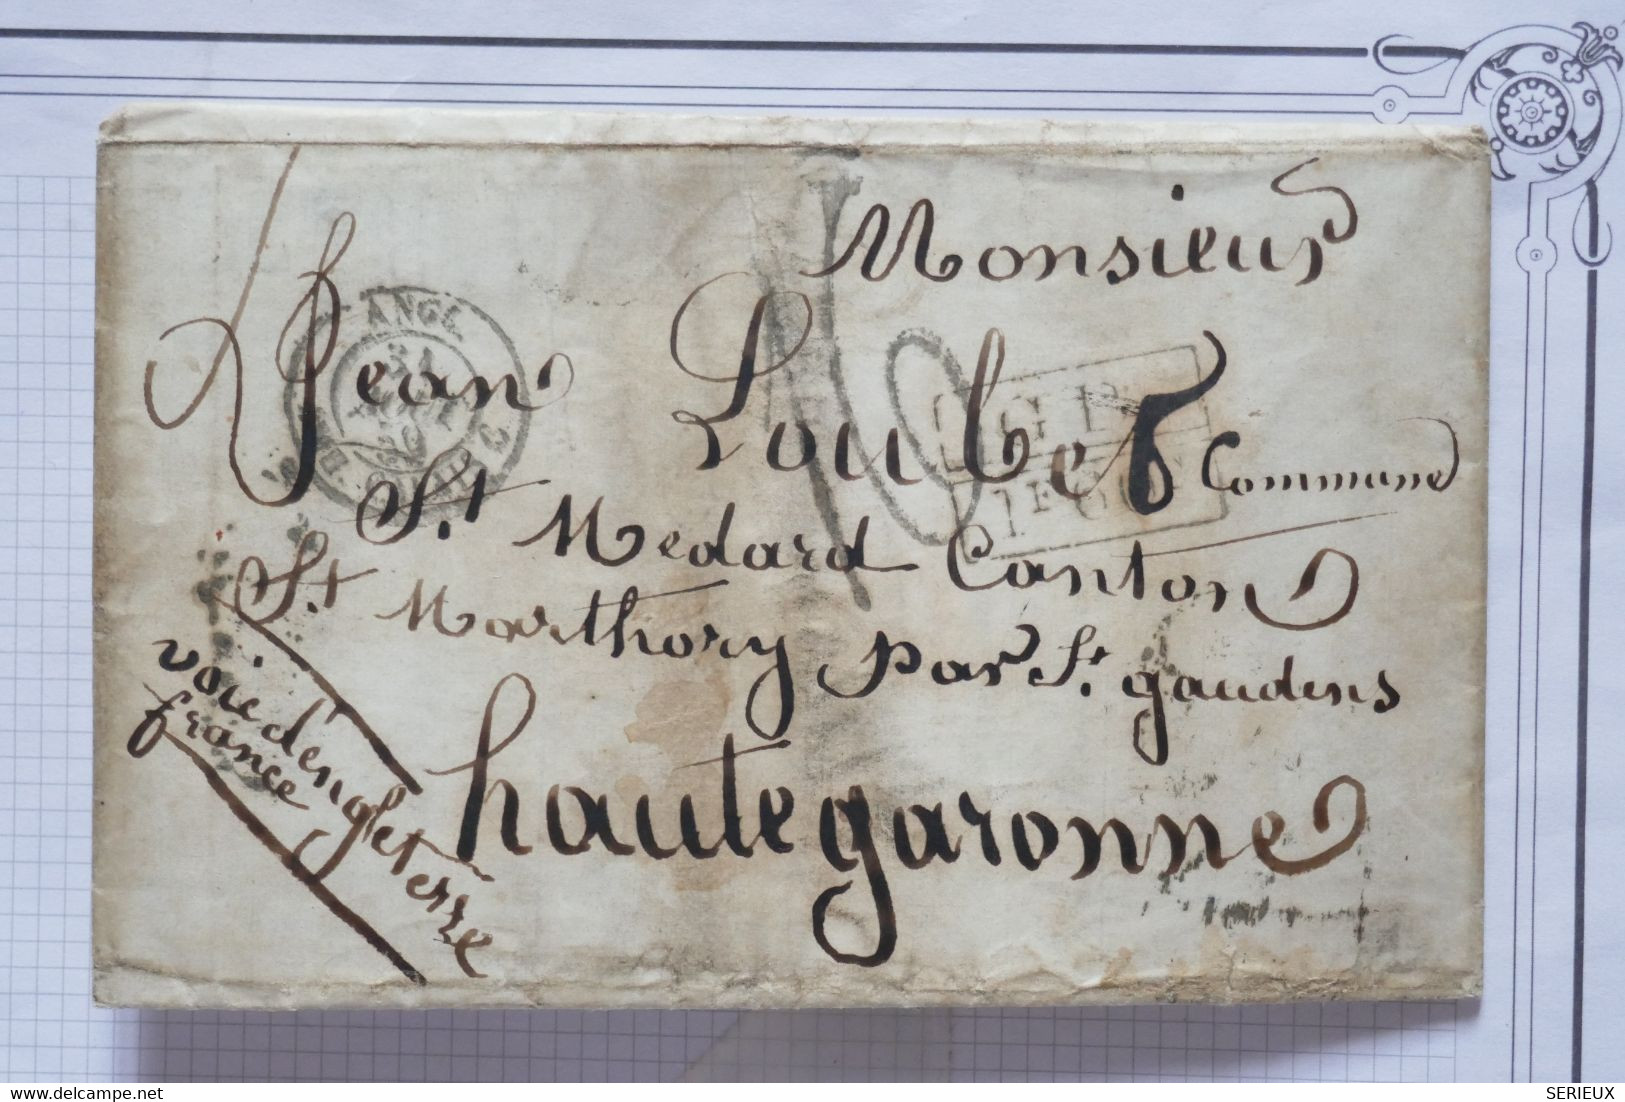 Monsieur
Jean Loubet Commune
St Medard Canton
St Marthory par St. gaudens
hautegaronne
voie d'engleterre
france
ANGL.
31
AOUT
60
2
CALAIS
G B
1F60C
16
delcampe.net
SERIEUX